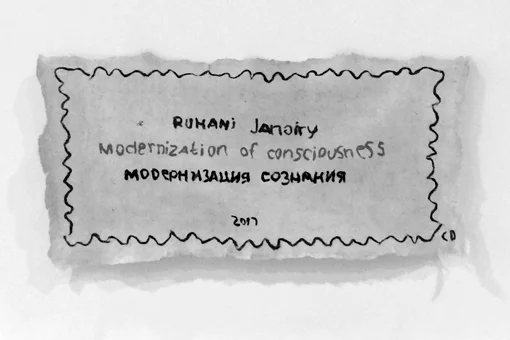 RUHANi Janoity
Modernization of consciousness
МОДЕРНИЗАЦИЯ СОЗНАНИЯ
2017
CD